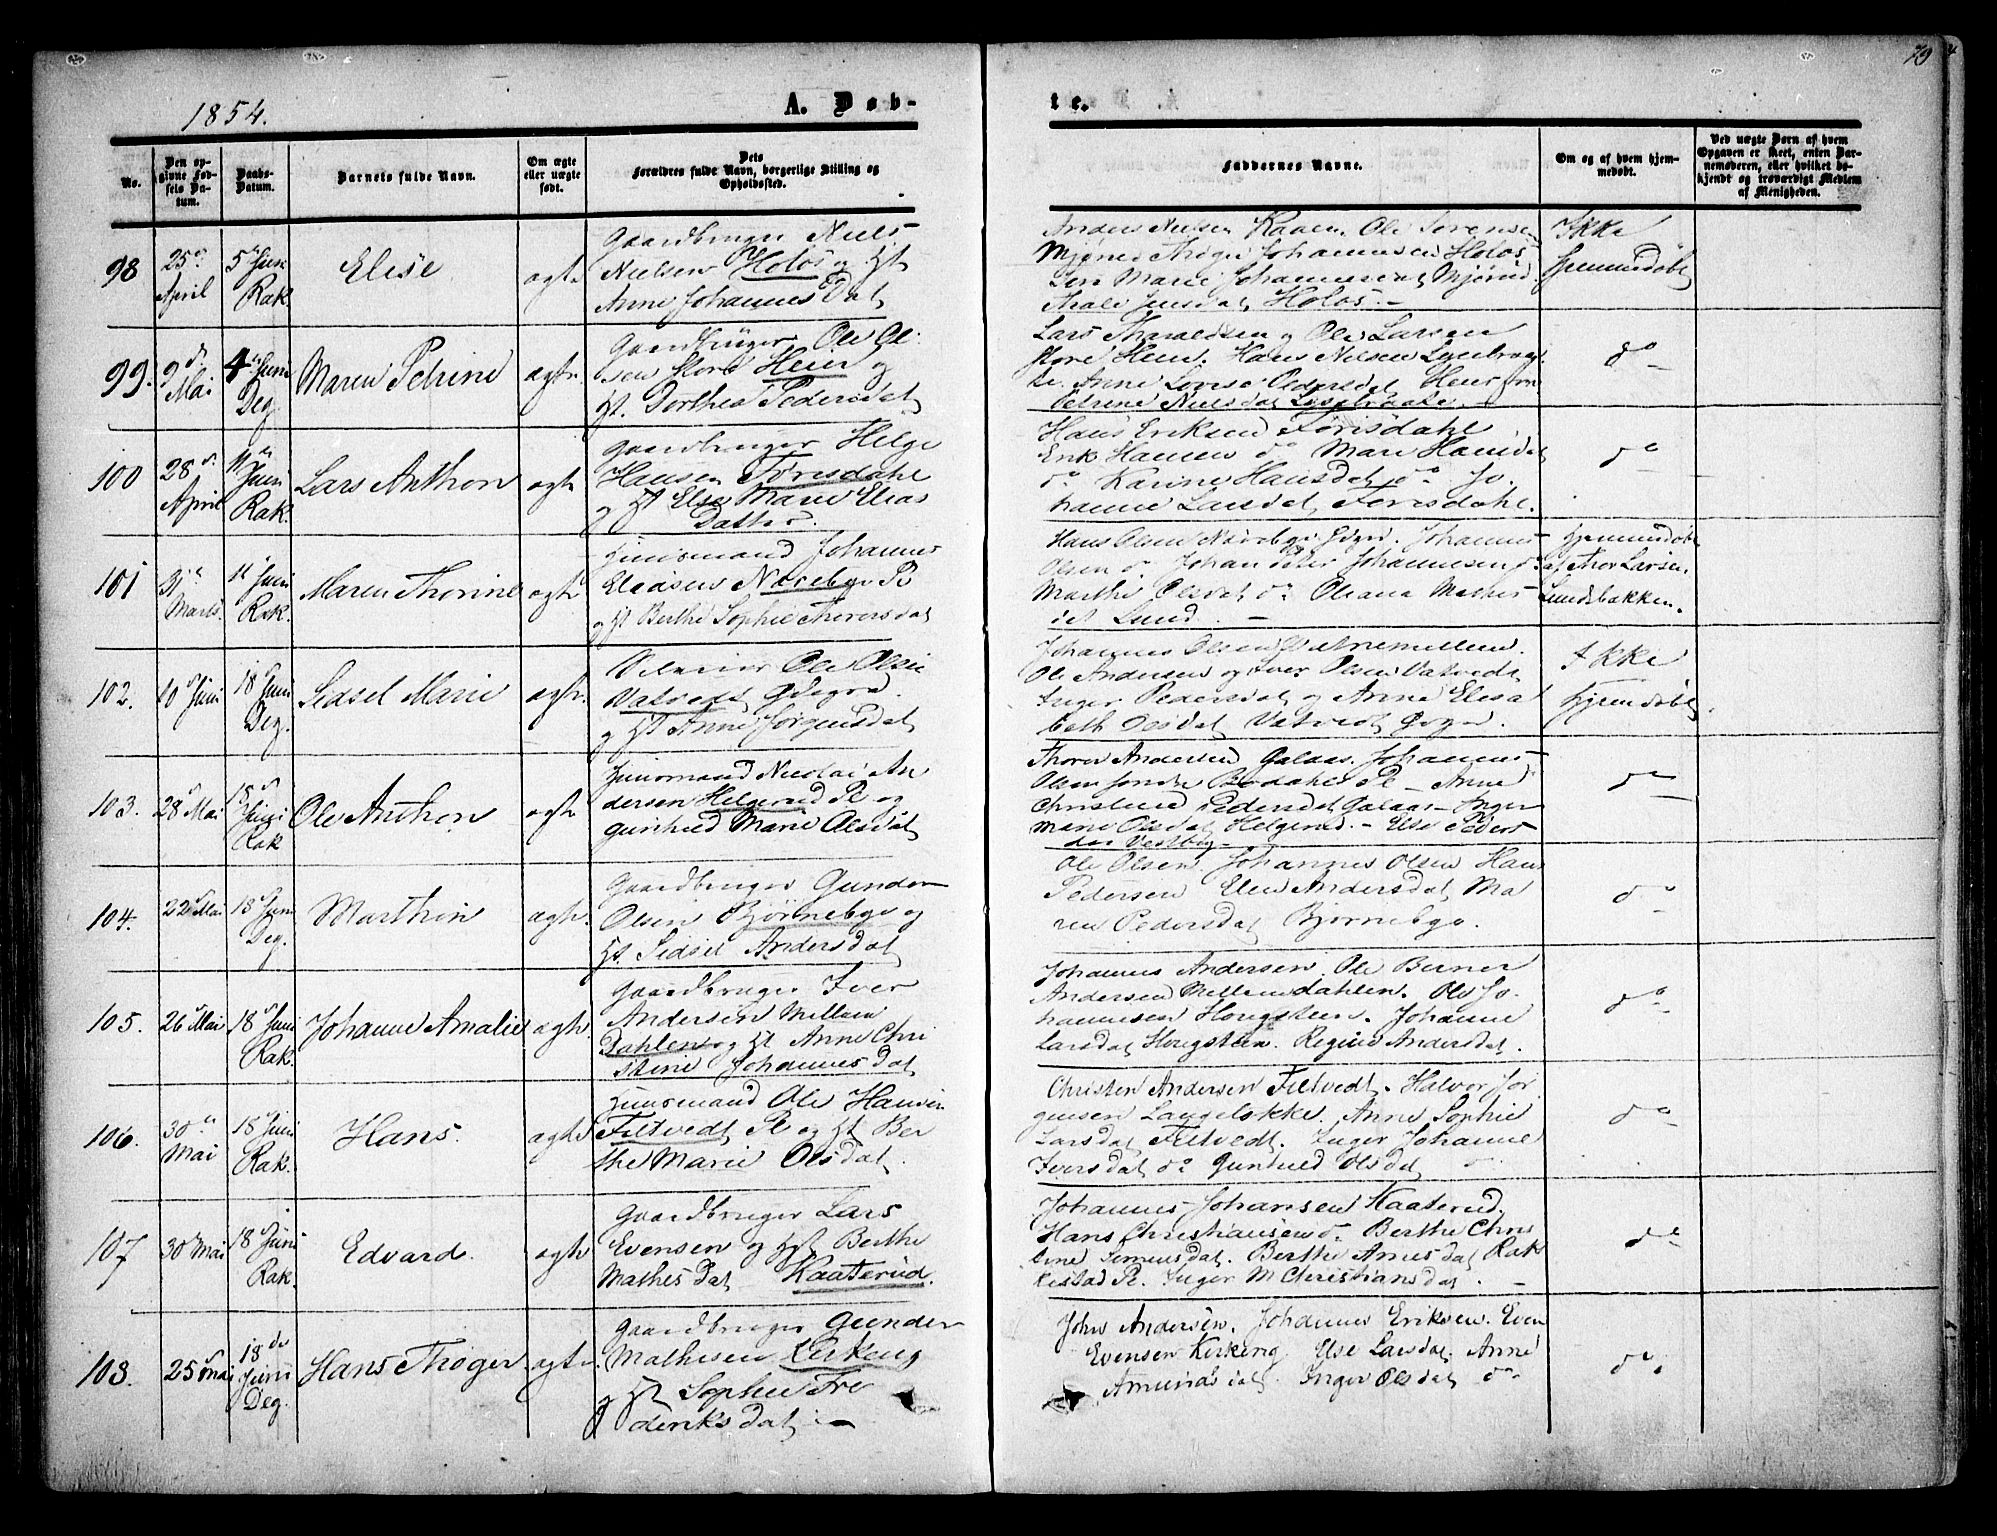 79
1854.
A. Døb-
te.
No.
Den op-
givne Fød-
sels Da-
tum.
Daabs-
Datum.
Barnets fulde Navn.
Om ægte
eller uægte
født.
Dets
Forældres fulde Navn, borgerlige Stilling og
Opholdssted.
Faddernes Navne.
Om og af hvem hjem-
medøbt.
Ved uægte Børn af hvem
Opgaven er skeet, enten Bar-
nemoderen, eller hvilket be-
kjendt og troværdigt Medlem
af Menigheden.
98
25de April
5te Juni Rak.
Elise
ægte
Gaardbruger Niels
Nielsen Holøs og Ht
Anne Johannes Dat
Anders Nielsen Kaaen. Ole Sørensen
Mjørud Johannesen Holøs
Marie Johannesdat Mjørud
Thale Jensdat Holøs. –
Ikke
hjemmedøbt
99.
9de Mai
4de Juni Deg.
Maren Petrine
ægte
Gaardbruger Ole Ol-
sen Store Heier og
Ht. Dorthea Pedersdat
Lars Haraldsen og Ole Larsen
Store Heier. Hans Nielsen
Anne Lovise Pedersdat Heier
Petrine Nielsdat
do
100
28de April
11te Juni Rak.
Lars Anthon
ægte
Gaardbruger Helge
Hansen Torisdahl
og Ht Else Marie Elias
Datter.
Hans Eriksen Torisdahl
Erik Hansen do Mari Hansdat
do Karine Hansdat do Jo-
hanne Larsdat Torisdahl.
do
101
31te Marts.
11 Juni Rak.
Maren Thorine
ægte
Huusmand Johannes
Eliasen Nærebye Pl
og Ht Berthe Sophie Thorersdat
Hans Olsen Nærebye Johannes
Olsen do Johan Peter Johannesen
Marthe Olsdat do Oleana Mathis
dat Lund. –
hjemmedøbt
af Thor Larsen
Lundsbakken.
102.
10de Juni
18 Juni Deg.
Sidsel Marie
ægte.
Ole Olsen
Vatvedt
og Ht Anne Jørgensdat
Johannes Olsen
Ole Andersen og Iver Olsen Vatvedt
Inger Pedersdat og Anne Elisa
beth Olsdat Vatvedt
Ikke
hjemdøbt
103.
28de Mai
18de Juni Rak
Ole Anthon
ægte
Huusmand Nicolai An
dersen Helgerud Pl og
Gunhild Marie Olsdat
Thorer Andersen Galaas. Johannes
Olsen Søndre Pl – Anne
Christine Pedersdat Galaas – Inger
Marie Olsdat Helgerud. – Else Peders
dat Vestby –
do
104.
22de Mai
18de Juni Deg.
Marthin
ægte.
Gaardbruger Gunder
Olsen Bjørnebye og
Ht. Sidsel Andersdat
Ole Olsen. Johannes Olsen Hans
Pedersen Elen Andersdat, Ma
ren Pedersdat Bjørnebye.
do
105.
26de Mai
18de Juni Rak.
Johanne Amalie
ægte
Gaardbruger Iver
Andersen Mellem
Dahlen og Ht Anne Chri
stine Johannes Dat
Johannes Andersen. Ole Berner
Andersen Mellemdahlen. Ole Jo-
hannesen Hougsteen. Johanne
Larsdat Hougsteen. Regine Andersdat.
do
106.
30te Mai
18de Juni Rak.
Hans.
ægte
Huusmand Ole Hansen
Filtvedt Pl og Ht Ber
the Marie Olsdat
Christen Andersen Filtvedt. Halvor Jør
gensen Langeløkke. Anne Sophie
Larsdat Filtvedt. Inger Johanne
Iversdat do Gunhild Olsdat do
do
107
30te Mai
18 Juni Rak.
Edvard.
ægte
Gaardbruger Lars
Evensen og Ht Berthe
Mathes Dat Kaaterud.
Johannes Johansen Kaaterud.
Hans Christiansen do Berthe Chris
tine Simensdat. Berthe Arnesdat Rak
kestad Pl. Inger M Christiansdat. –
do
108.
25de Mai
18de Juni Deg.
Hans Thøger
ægte.
Gaardbruger Gunder
Mathisen Kirkeng
og Ht Sophie Fre
deriksdat. –
John Andersen. Johannes Eriksen. Even
Evensen Kirkeng. Else Larsdat. Anne
Amundsdat. Inger Olsdat do
do